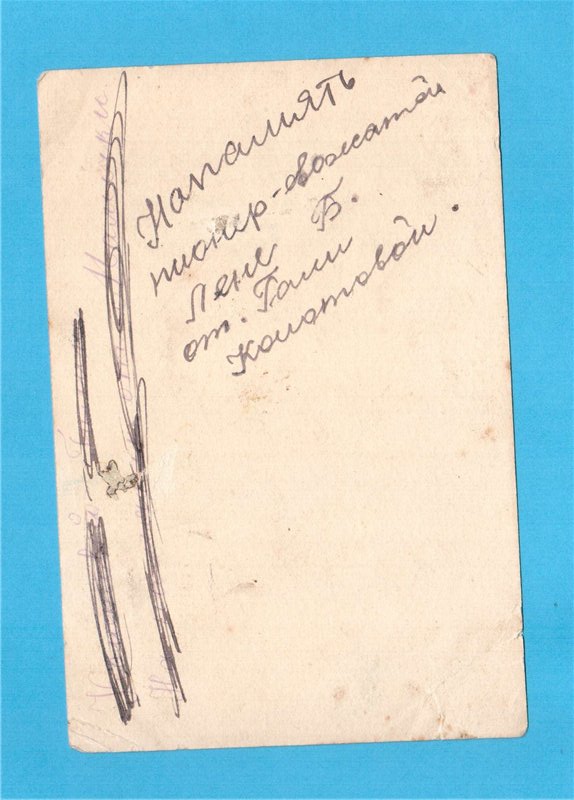 Напамять
пионер-вожатой
Лене Б.
от. Гали
Колотовой.